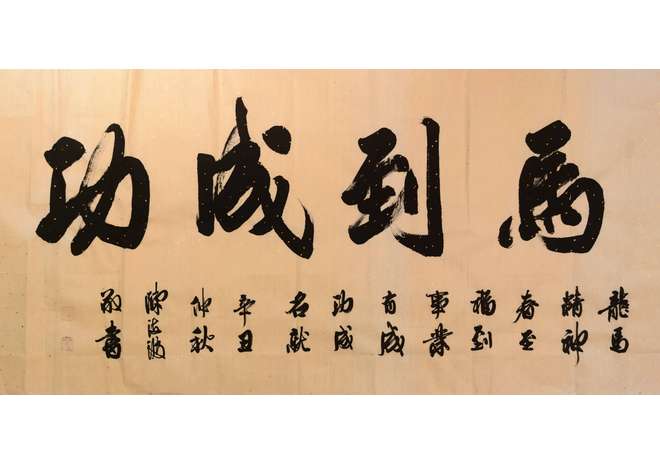 馬到成功
龍馬
精神
春至
福到
事業
有成
功成
名就
辛丑
仲秋
陳海
敬書